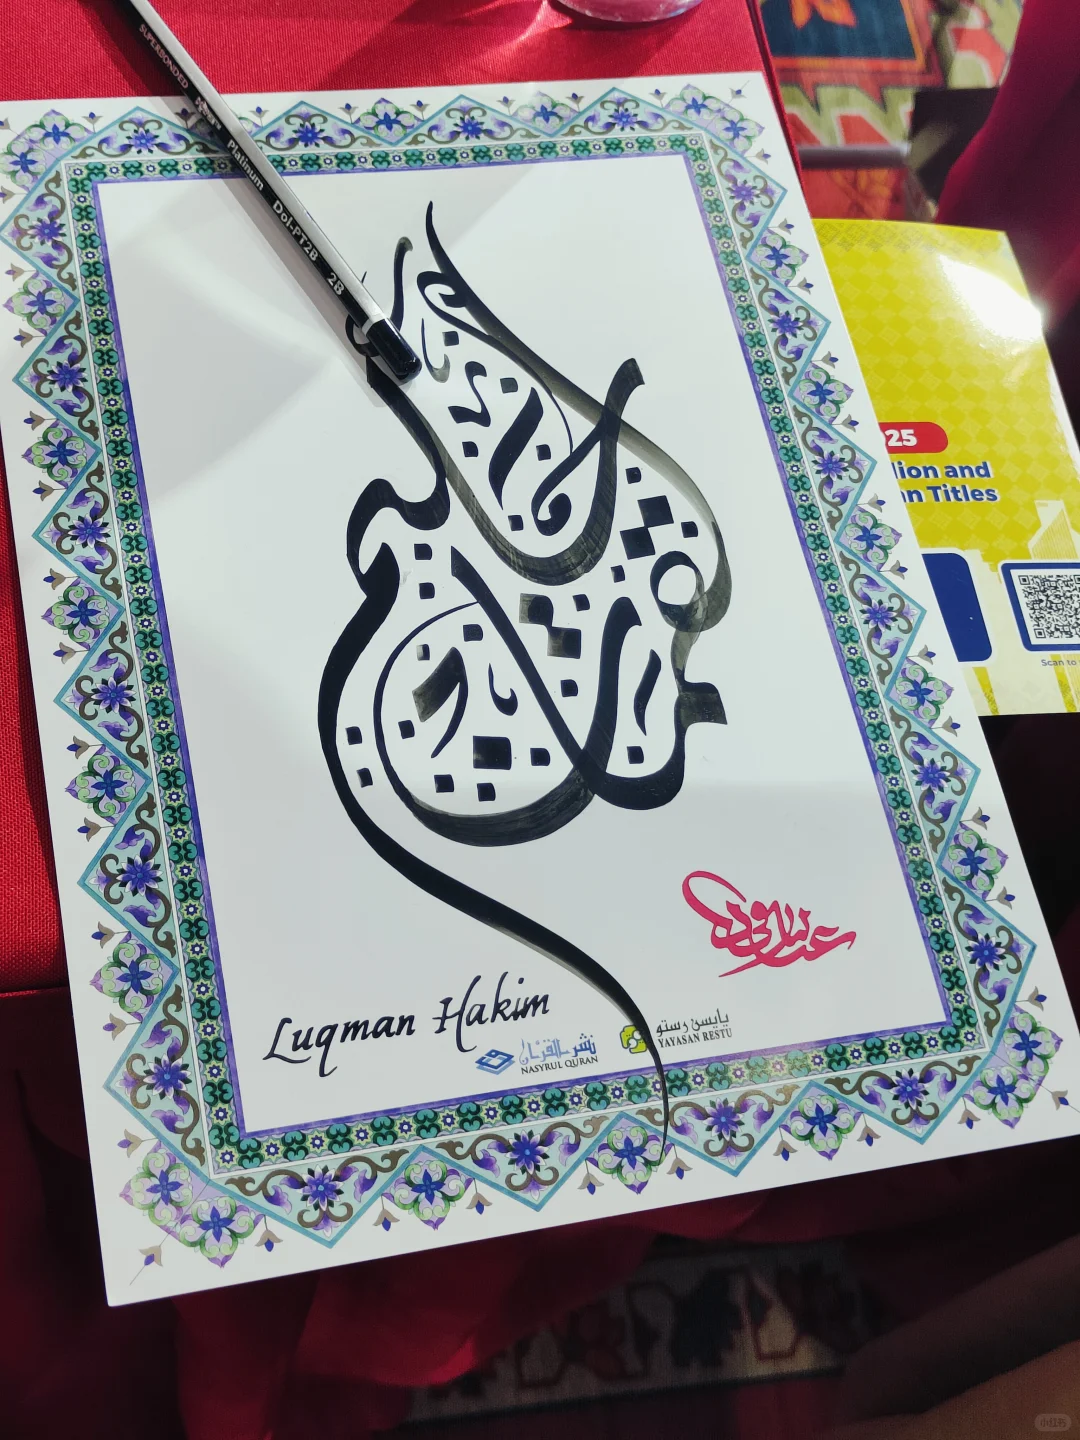 SUPERBONDED Platinum Dol-PT2B 2B
لقمان الحكيم
25
lion and
n Titles
Scan to
Luqman Hakim
نشر القرءان
NASYRUL QURAN
يايسن رستو
YAYASAN RESTU
小红书